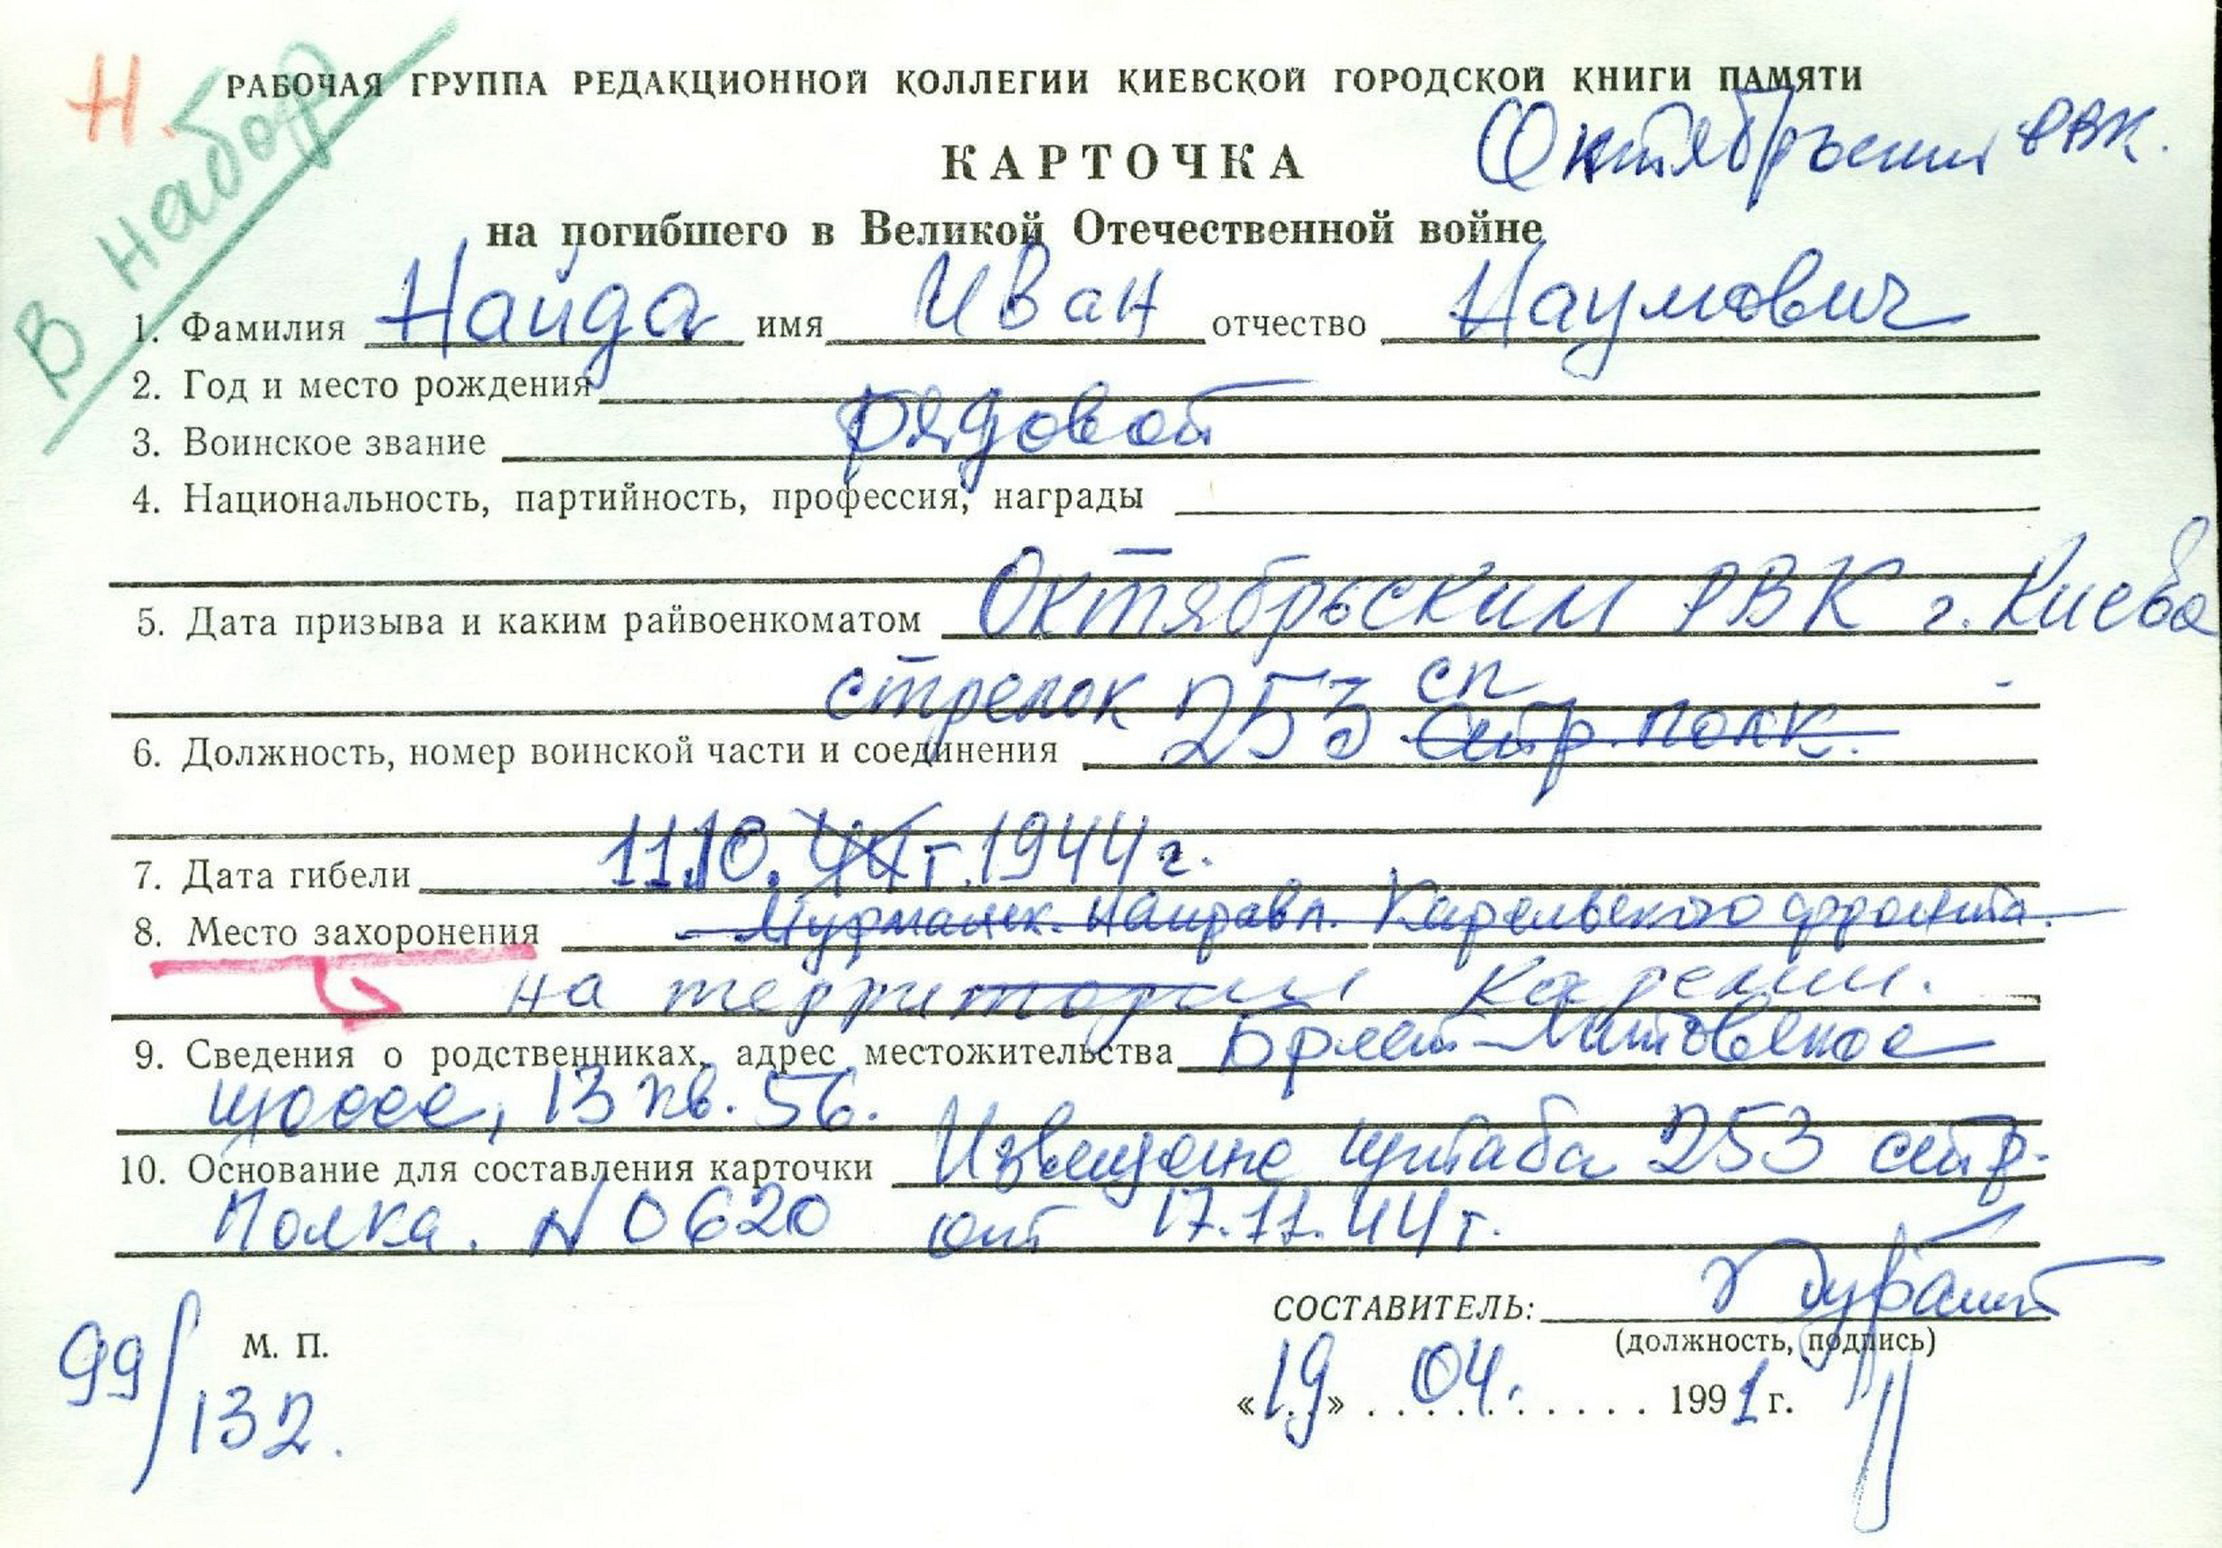 Н.
В набор
РАБОЧАЯ ГРУППА РЕДАКЦИОННОЙ КОЛЛЕГИИ КИЕВСКОЙ ГОРОДСКОЙ КНИГИ ПАМЯТИ
Октябрьский РВК.
КАРТОЧКА
на погибшего в Великой Отечественной войне
1. Фамилия Найда имя Иван отчество Наумович
2. Год и место рождения
3. Воинское звание рядовой
4. Национальность, партийность, профессия, награды
—
5. Дата призыва и каким райвоенкоматом Октябрьским РВК г. Киева
стрелок 253 сп
6. Должность, номер воинской части и соединения стр. полк.
7. Дата гибели 11.10. 44 г. 1944 г.
8. Место захоронения Мурманск. направл. Карельского фронта.
на территории Карелии.
9. Сведения о родственниках, адрес местожительства Брест-Литовское
шоссе, 13 кв. 56.
10. Основание для составления карточки Извещение штаба 253 стр.
Полка. N 0620 от 17.11.44 г.
СОСТАВИТЕЛЬ:
(должность, подпись)
М. П.
99/132.
«19» 04. 1991 г.